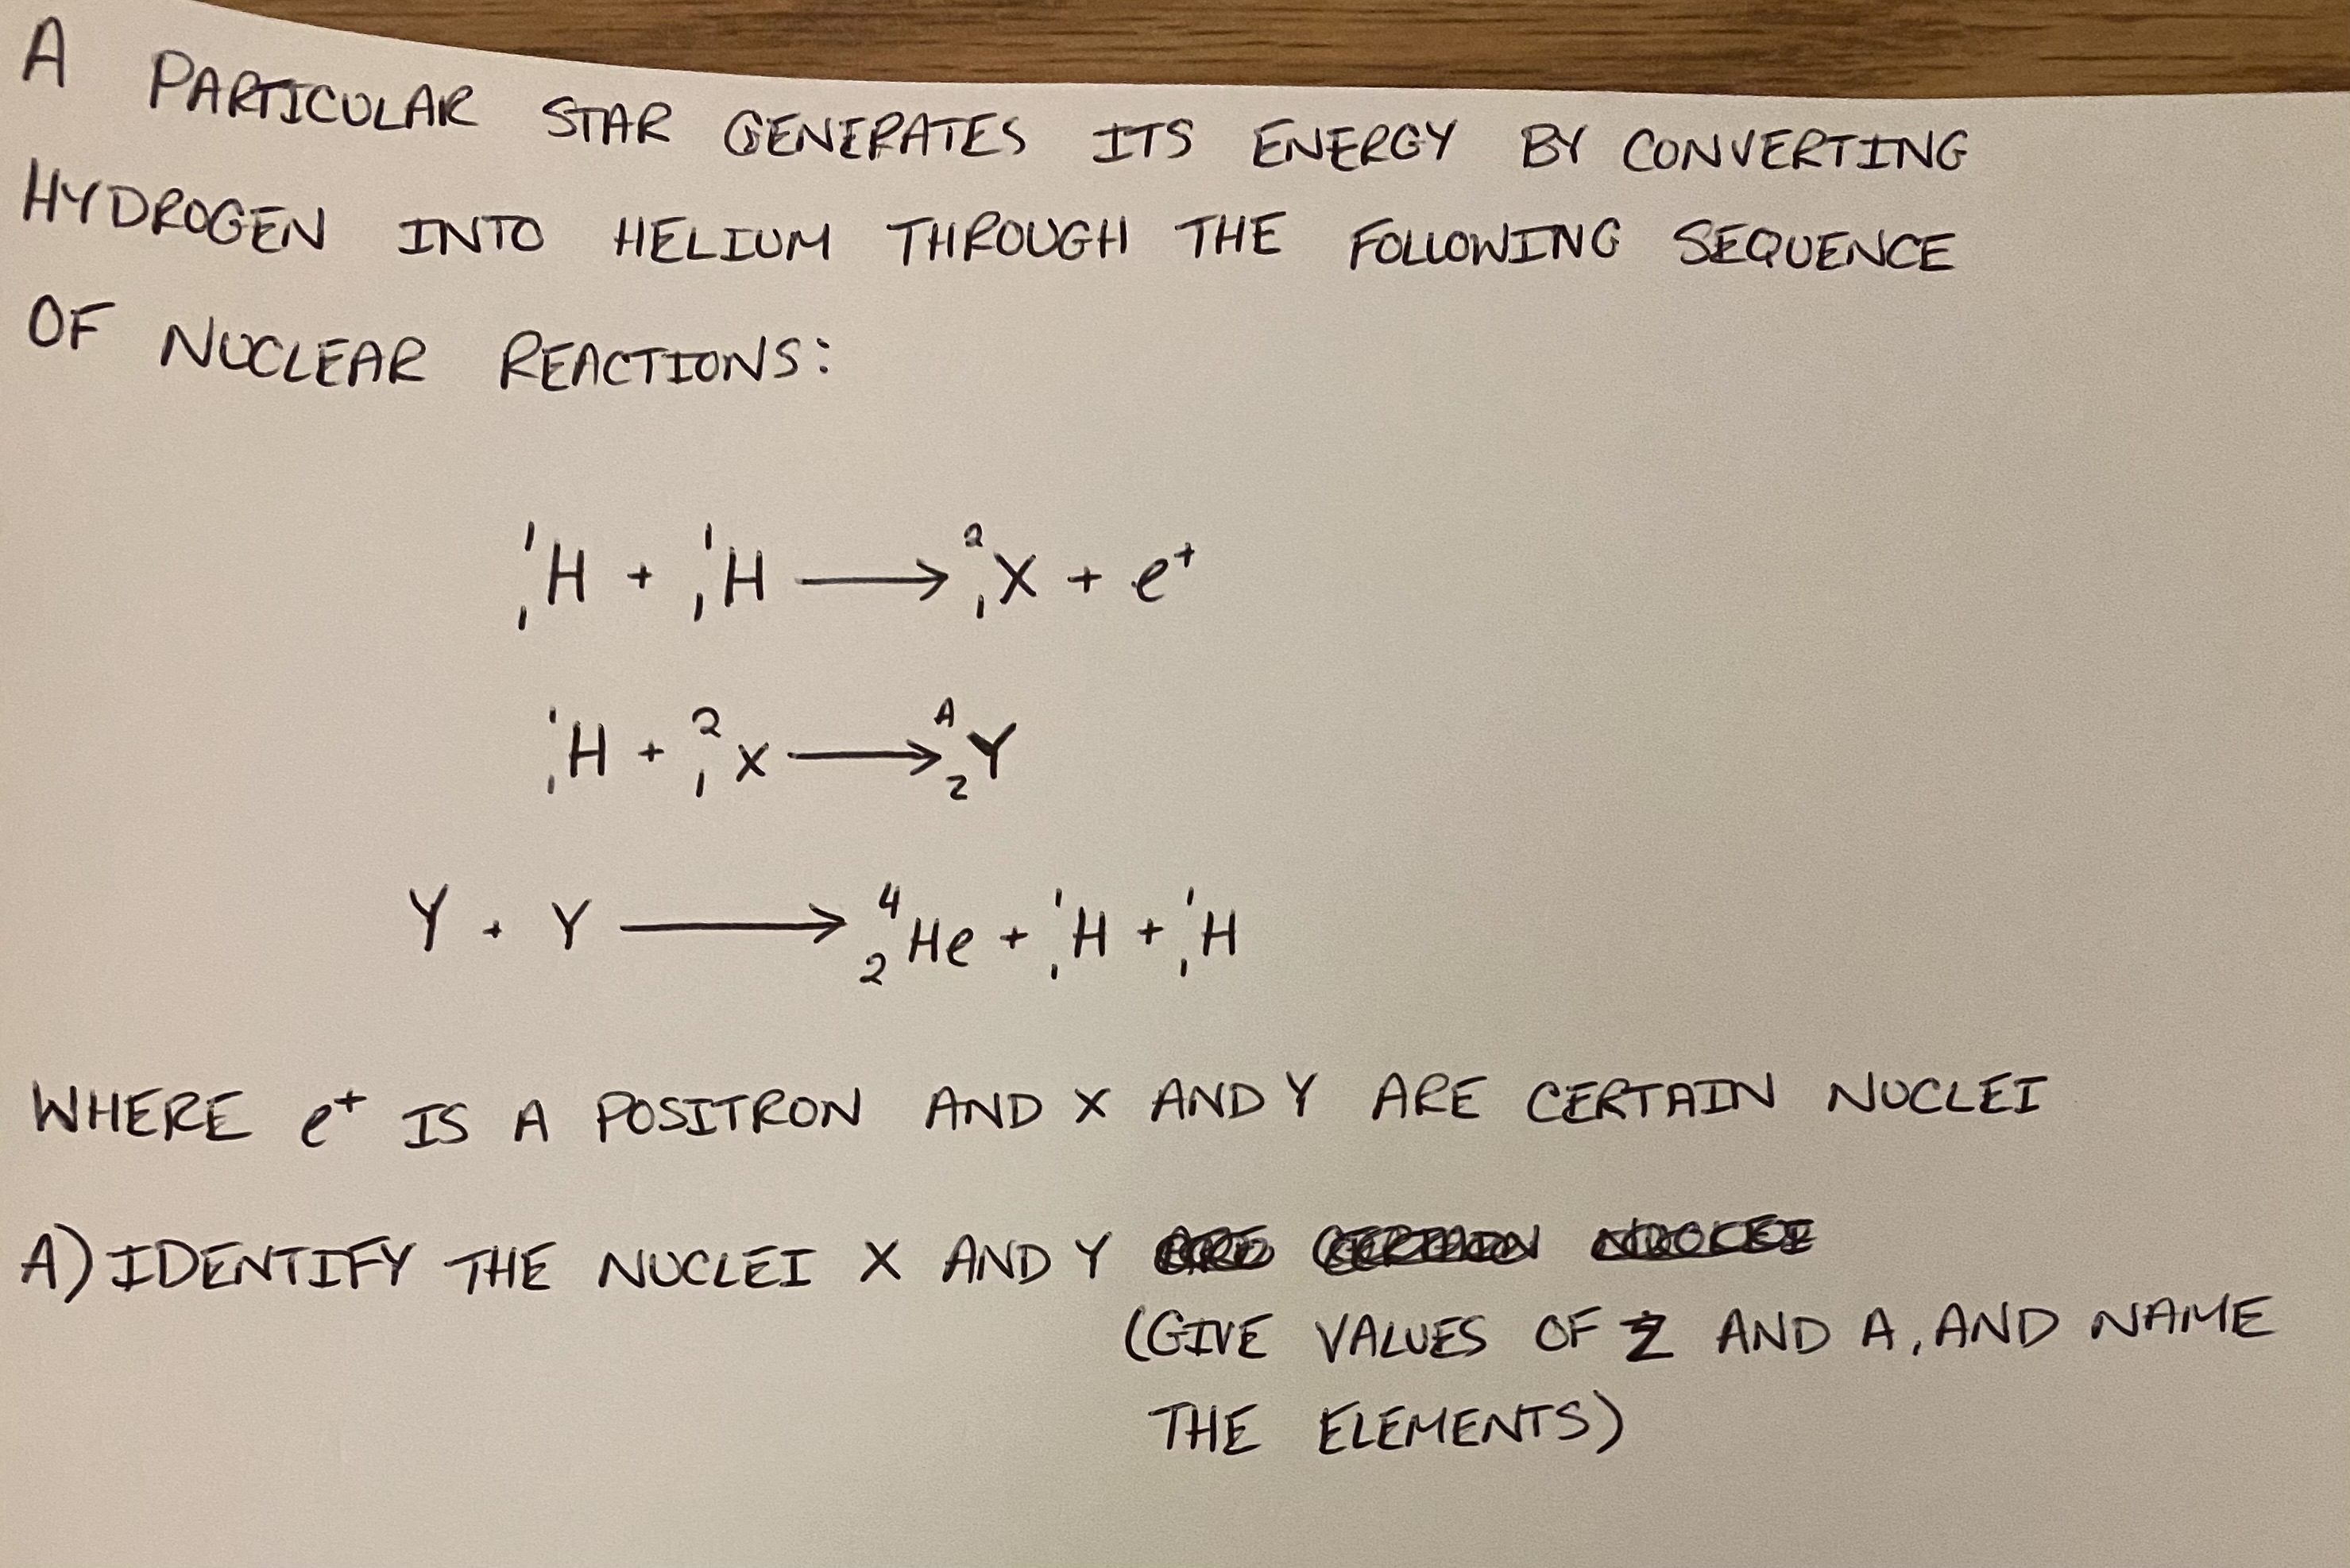 A PARTICULAR STAR GENERATES ITS ENERGY BY CONVERTING
HYDROGEN INTO HELIUM THROUGH THE FOLLOWING SEQUENCE
OF NUCLEAR REACTIONS:
¹₁H + ¹₁H ⟶ ²₁X + e⁺
¹₁H + ²₁X ⟶ ᴬ₂Y
Y + Y ⟶ ⁴₂He + ¹₁H + ¹₁H
WHERE e⁺ IS A POSITRON AND X AND Y ARE CERTAIN NUCLEI
A) IDENTIFY THE NUCLEI X AND Y
(GIVE VALUES OF Z AND A, AND NAME
THE ELEMENTS)